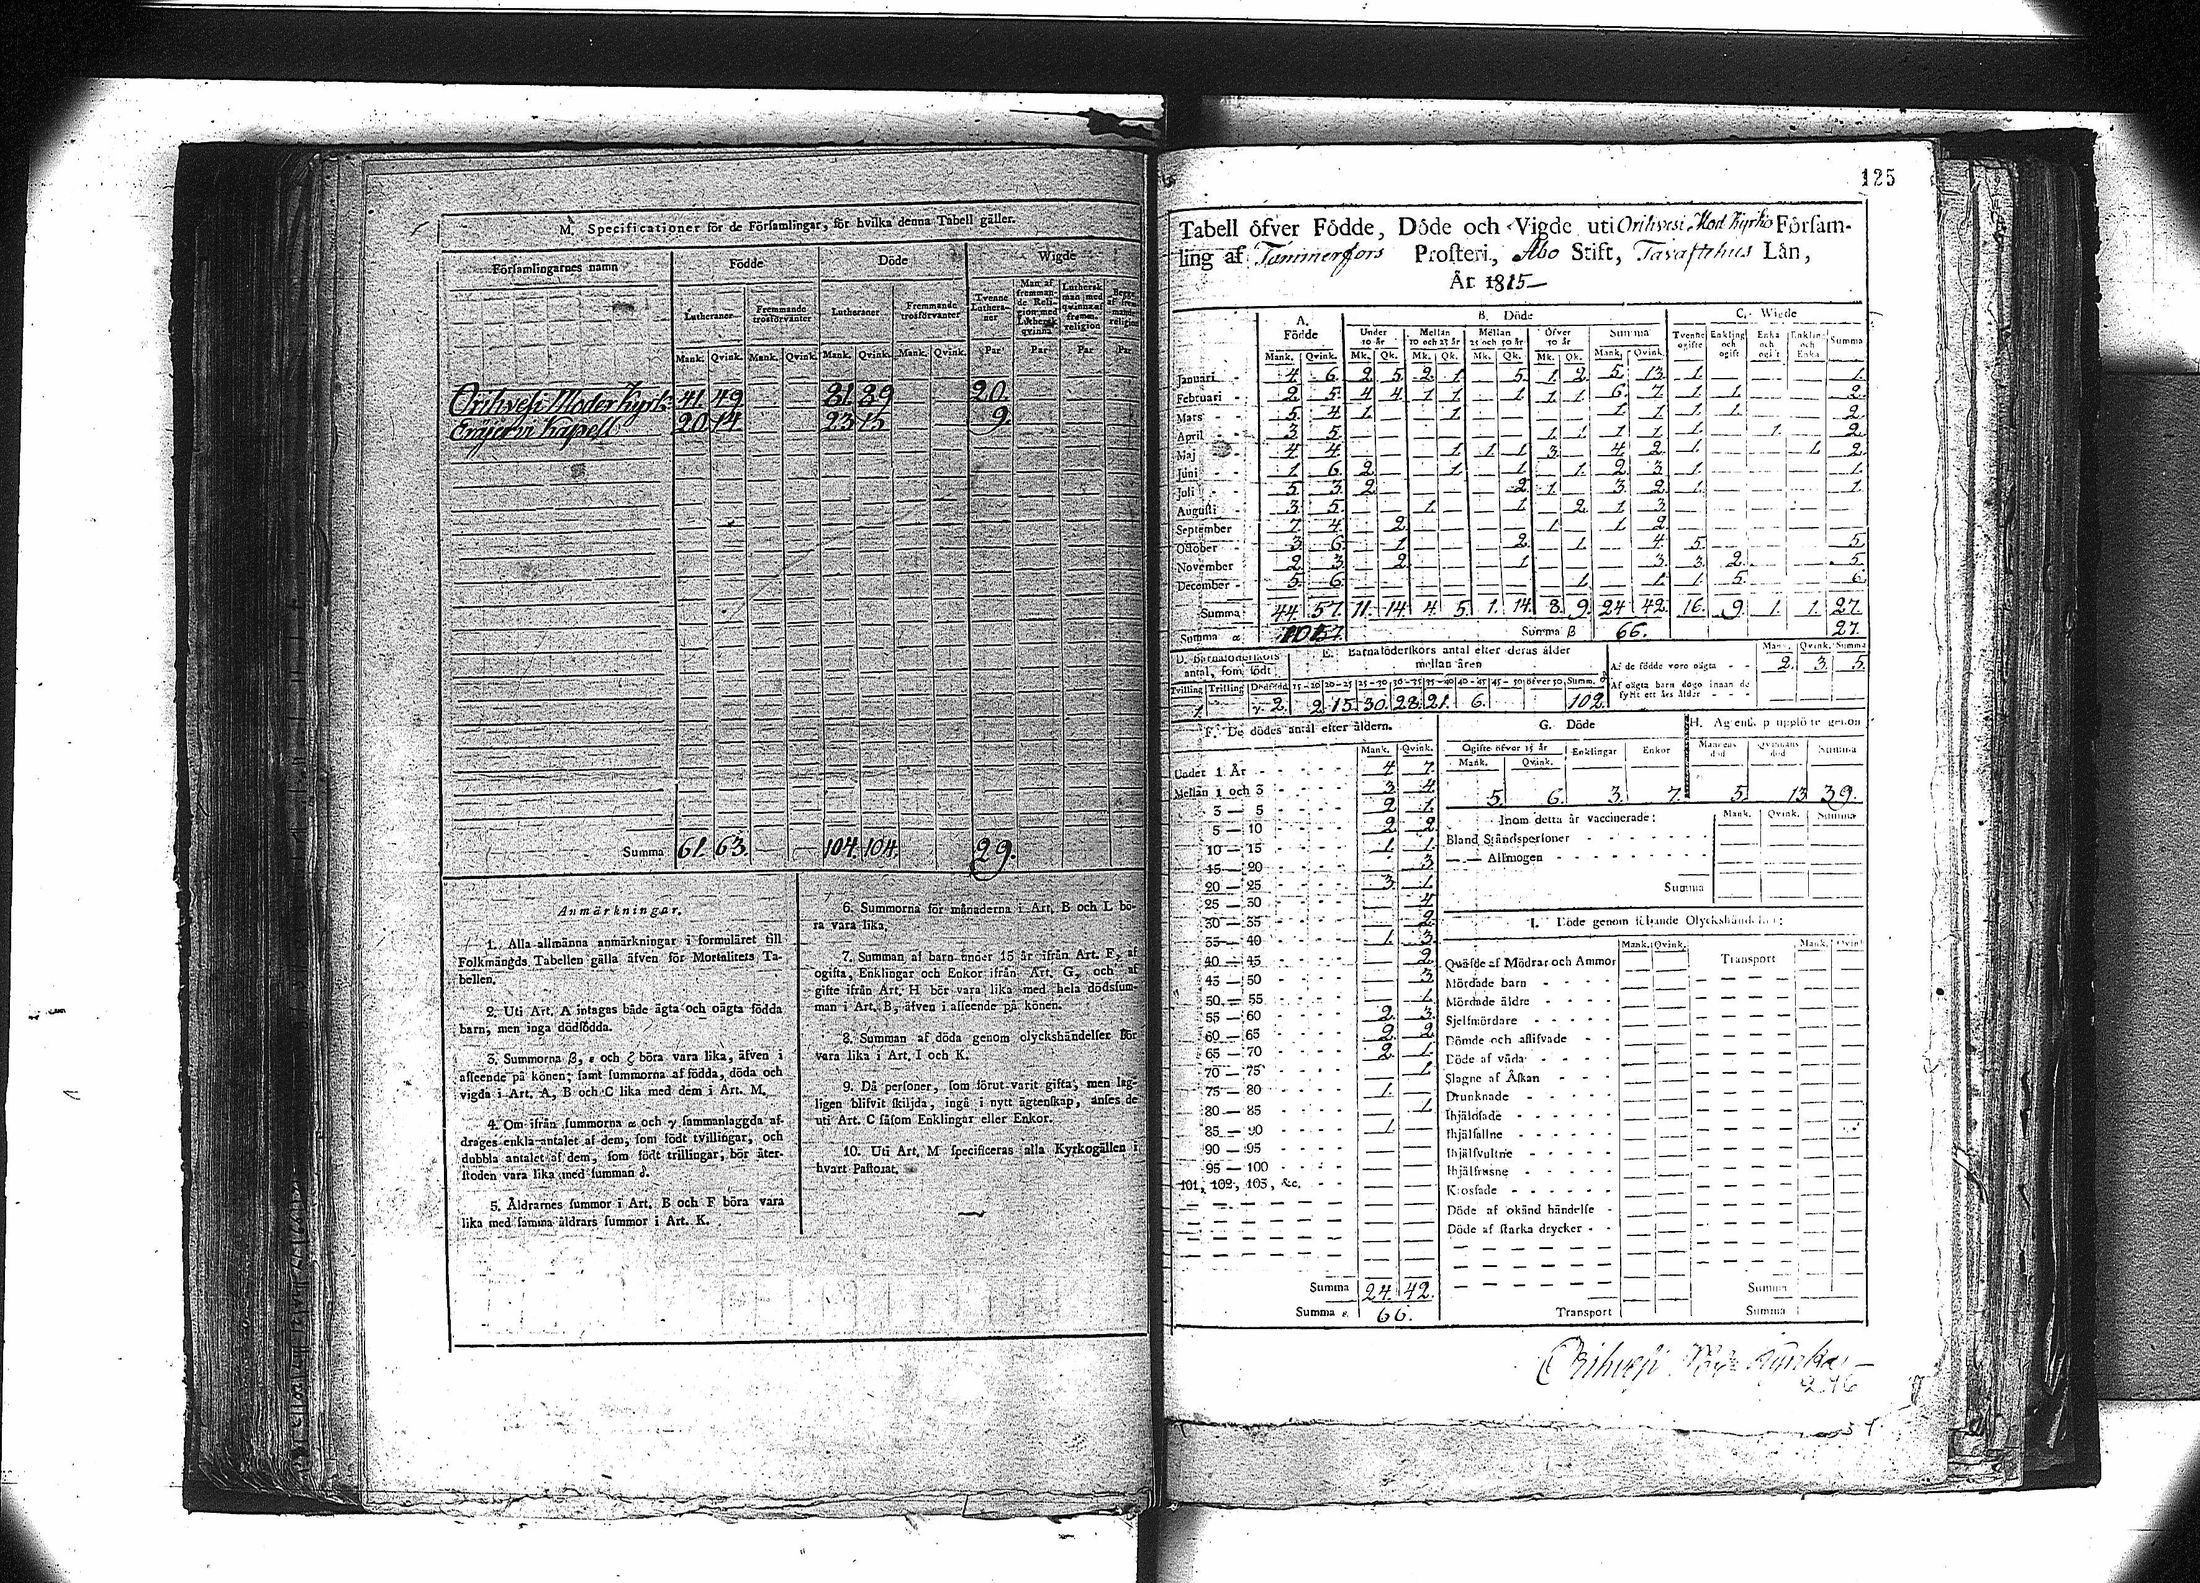 M. Specificationer för de Församlingar, för hvilka denna Tabell gäller.
Församlingarnes namn Födde Döde Wigde
Lutheraner Fremmande trosförvanter Lutheraner Fremmande trosförvanter Tvenne Lutheraner Man af fremmande Religion med Luthersk qvinna Luthersk man med qvinna af fremm. religion
Mank. Qvink. Mank. Qvink. Mank. Qvink. Mank. Qvink. Par Par Par Par
Orihvesi Moder Kyrk. 41 49 81 89 20.
Eräjärvi Kapell 20 14 23 15 9.
Summa 61. 63. 104. 104. 29.
Anmärkningar.
1. Alla allmänna anmärkningar i formuläret till
Folkmängds Tabellen gälla äfven för Mortalitets Ta-
bellen.
2. Uti Art. A intagas både ägta och oägta födda
barn, men inga dödfödda.
3. Summorna β, ε och ζ böra vara lika, äfven i
afseende på könen; samt summorna af födda, döda och
vigda i Art. A, B och C lika med dem i Art. M.
4. Om ifrån summorna α och γ sammanlaggda af-
drages enkla antalet af dem, som födt tvillingar, och
dubbla antalet af dem, som födt trillingar, bör åter-
stoden vara lika med summan δ.
5. Åldrarnes summor i Art. B och F böra vara
lika med samma åldrars summor i Art. K.
6. Summorna för månaderna i Art. B och L bö-
ra vara lika.
7. Summan af barn under 15 år ifrån Art. F, af
ogifta, Enklingar och Enkor ifrån Art. G, och af
gifte ifrån Art. H bör vara lika med hela dödssum-
man i Art. B, äfven i afseende på könen.
8. Summan af döda genom olyckshändelser bör
vara lika i Art. I och K.
9. Då personer, som förut varit gifta, men lag-
ligen blifvit skiljda, ingå i nytt ägtenskap, anses de
uti Art. C såsom Enklingar eller Enkor.
10. Uti Art. M specificeras alla Kyrkogällen i
hvart Pastorat.
125
Tabell öfver Födde, Döde och Vigde uti Orihvesi Mod. Kyrko Församling
af Tammerfors Prosteri, Åbo Stift, Tavastehus Län,
År 1815
A. Födde B. Döde C. Wigde
Under 10 år Mellan 10 och 25 år Mellan 25 och 50 år Öfver 50 år Summa Tvenne ogifte Enkling och ogift Enka och ogift Enkling och Enka Summa
Mank. Qvink. Mk. Qk. Mk. Qk. Mk. Qk. Mk. Qk. Mank. Qvink.
Januari 4. 6. 2. 5. 2. 1. 5. 1. 2. 5. 13. 1. 1.
Februari 2. 5. 4. 4. 1. 1. 1. 1. 1. 6. 7. 1. 1. 2.
Mars 5. 4. 1. 1. 1. 1. 1. 1. 2.
April 3. 5. 1. 1. 1. 1. 1. 1. 2.
Maj 4. 4. 1. 1. 1. 3. 4. 2. 1. 1. 2.
Juni 1. 6. 2. 1. 1. 1. 2. 3. 1. 1.
Juli 5. 3. 2. 2. 1. 3. 2. 1. 1.
Augusti 3. 5. 1. 1. 2. 1. 3.
September 7. 4. 2. 1. 1. 2.
October 3. 6. 1. 2. 1. 4. 5. 5.
November 2. 3. 2. 1. 3. 3. 2. 5.
December 5. 6. 1. 1. 1. 5. 6.
Summa 44. 57. 11. 14. 4. 5. 1. 14. 8. 9. 24 42. 16. 9. 1. 1. 27.
Summa α Summa β 66. 27.
D. Barnaföderskors antal, som födt E. Barnaföderskors antal efter deras ålder mellan åren
Mank. Qvink. Summa
Af de födde voro oägta 2. 3. 5.
Af oägta barn dogo innan de fyllt ett års ålder
Tvilling Trilling Dödfödd 15-20 20-25 25-30 30-35 35-40 40-45 45-50 öfver 50 Summ. δ
1. γ 2. 2. 15. 30. 28. 21. 6. 102.
F. De dödes antal efter åldern.
Mank. Qvink.
Under 1 År 4. 7.
Mellan 1 och 3 3. 4.
3 — 5 2. 1.
5 — 10 2. 2.
10 — 15 1. 1.
15 — 20 3.
20 — 25 3. 1.
25 — 30 4.
30 — 35 2.
35 — 40 1. 3.
40 — 45 2.
45 — 50 3.
50 — 55 1.
55 — 60 2. 3.
60 — 65 2. 2.
65 — 70 2. 1.
70 — 75 1.
75 — 80 1.
80 — 85 1.
85 — 90 1.
90 — 95
95 — 100
101, 102, 103, &c.
Summa 24. 42.
Summa ε. 66.
G. Döde
Ogifte öfver 15 år Enklingar Enkor
Mank. Qvink.
5. 6. 3. 7.
H. Ägtensk. upplöste genom
Mannens död Qvinnans död Summa
5. 13 39.
Inom detta år vaccinerade: Mank. Qvink. Summa
Bland Ståndspersoner
— — Allmogen
Summa
I. Döde genom följande Olyckshändelser:
Mank. Qvink. Mank. Qvink.
Qväfde af Mödrar och Ammor Transport
Mördade barn
Mördade äldre
Sjelfmördare
Dömde och aflifvade
Döde af våda
Slagne af Åskan
Drunknade
Ihjälösade
Ihjälfallne
Ihjälsvultne
Ihjälfrusne
Kåosfade
Döde af okänd händelse
Döde af starka drycker
Summa
Transport Summa
Orihvesi